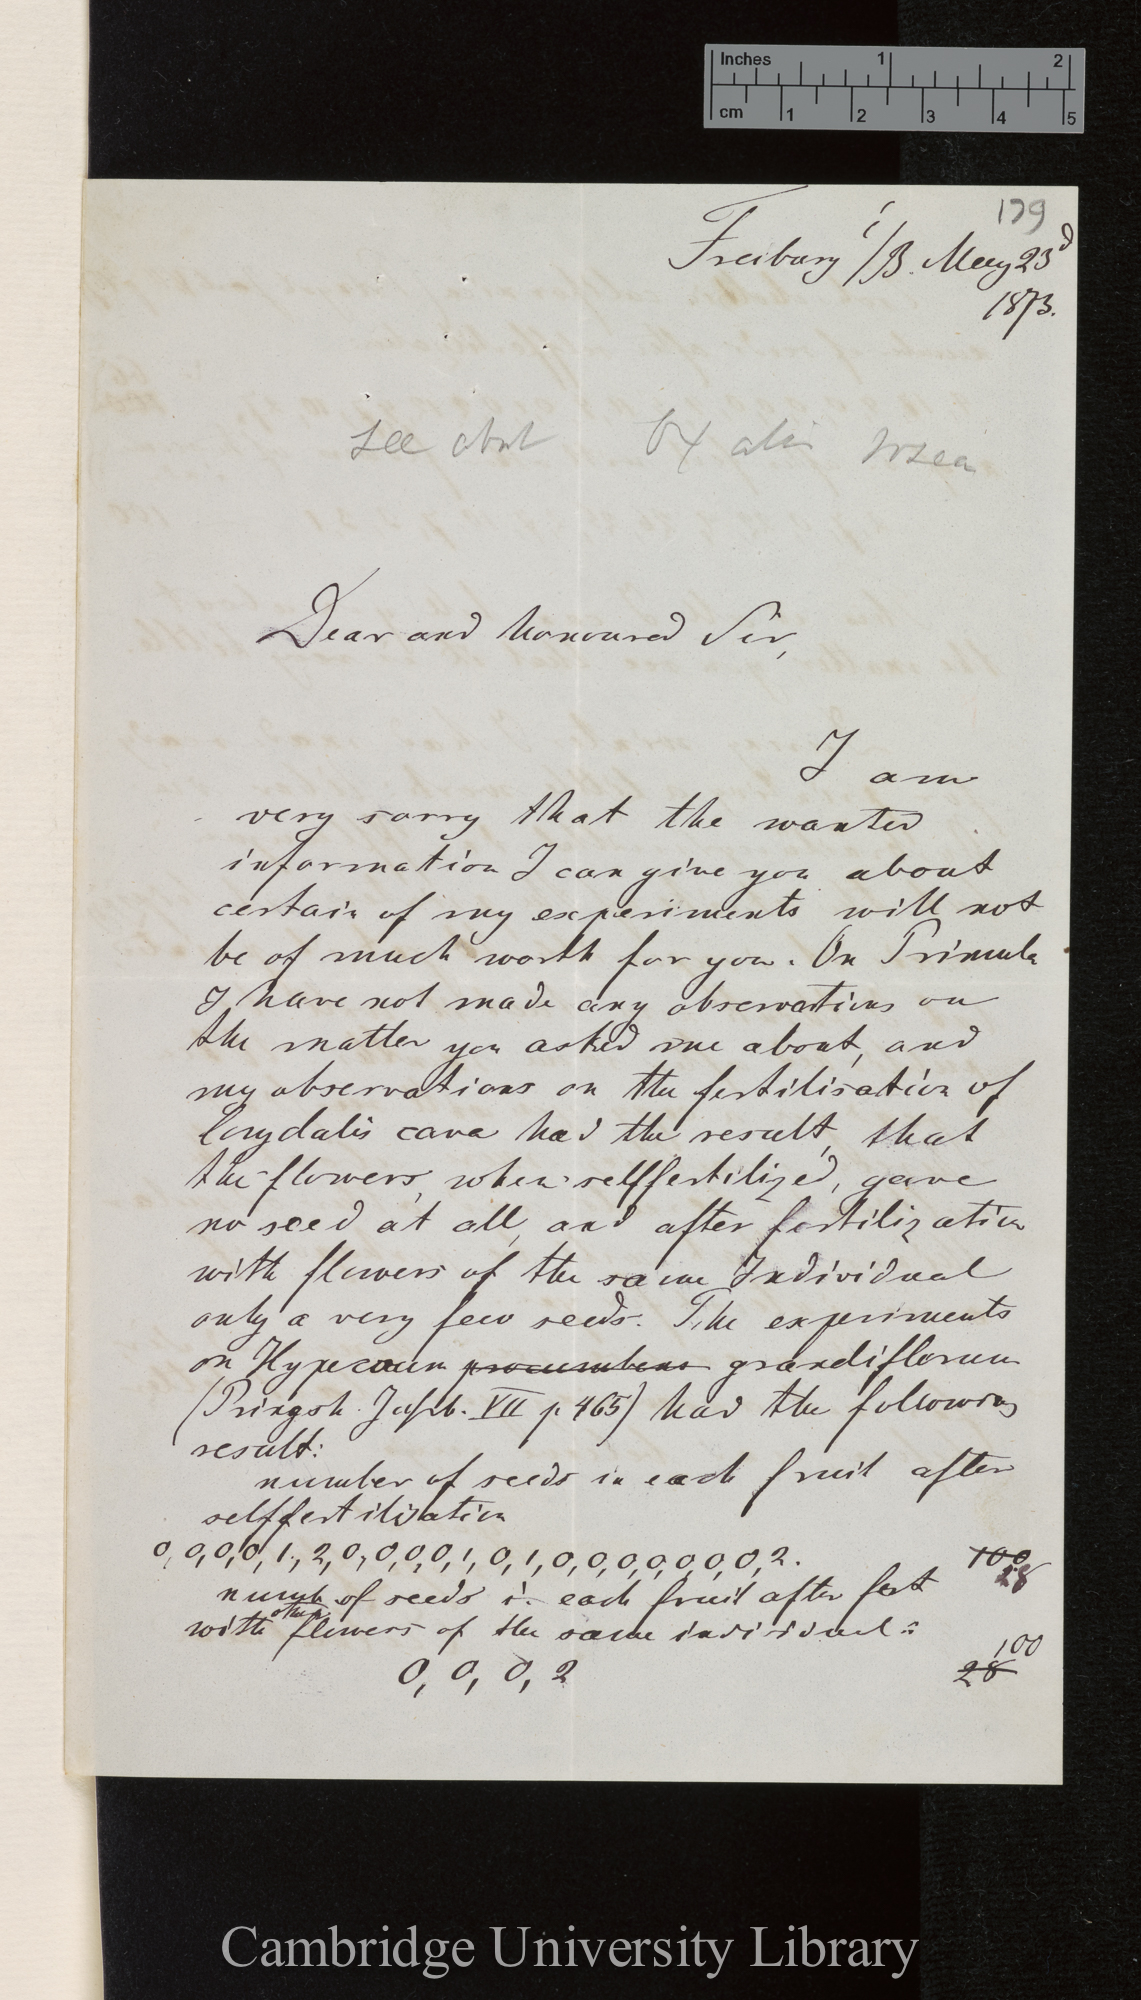 Inches 1 2
cm 1 2 3 4 5
179
Freiburg i/B. May 23d
1873.
see about Oxalis rosea
Dear and honoured Sir,
I am
very sorry that the wanted
information I can give you about
certain of my experiments will not
be of much worth for you. On Primula
I have not made any observations on
the matter you asked me about, and
my observations on the fertilisation of
Corydalis cava had the result, that
the flowers, when selffertilized, gave
no seed at all, and after fertilization
with flowers of the same Individual
only a very few seeds. The experiments
on Hypecoum procumbens grandiflorum
(Pringsh. Jahrb. VII p. 465) had the following
result:
number of seeds in each fruit after
selffertilisation
0, 0, 0, 0, 1, 2, 0, 0, 0, 0, 1, 0, 1, 0, 0, 0, 0, 0, 0, 0, 2. 100
28
numb of seeds i. each fruit after fert
with other flowers of the same individual:
100
0, 0, 0, 2 28
Cambridge University Library